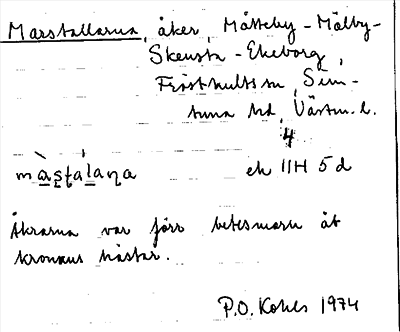 Marstallarna, åker, Måtteby - Mälby -
Skensta - Ekeborg,
Fröshults sn, Sim-
tuna hd, Västm. l.
4
màşţálaņa ek 11H 5 d
Åkrarna var förr betesmark åt
kronans hästar.
P.O. Kohls 1974